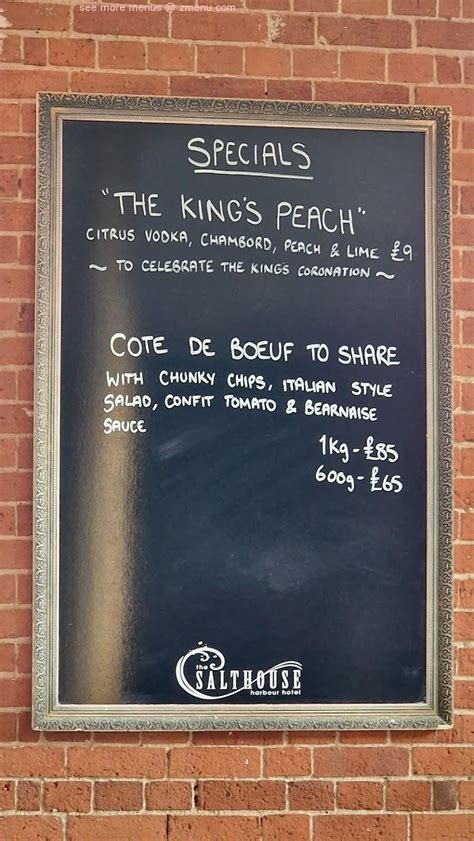 see more menus @ zmenu.com
SPECIALS
"THE KING'S PEACH"
CITRUS VODKA, CHAMBORD, PEACH & LIME £9
~ TO CELEBRATE THE KING'S CORONATION ~
COTE DE BOEUF TO SHARE
WITH CHUNKY CHIPS, ITALIAN STYLE
SALAD, CONFIT TOMATO & BEARNAISE
SAUCE
1Kg - £85
600g - £65
the
SALTHOUSE
harbour hotel